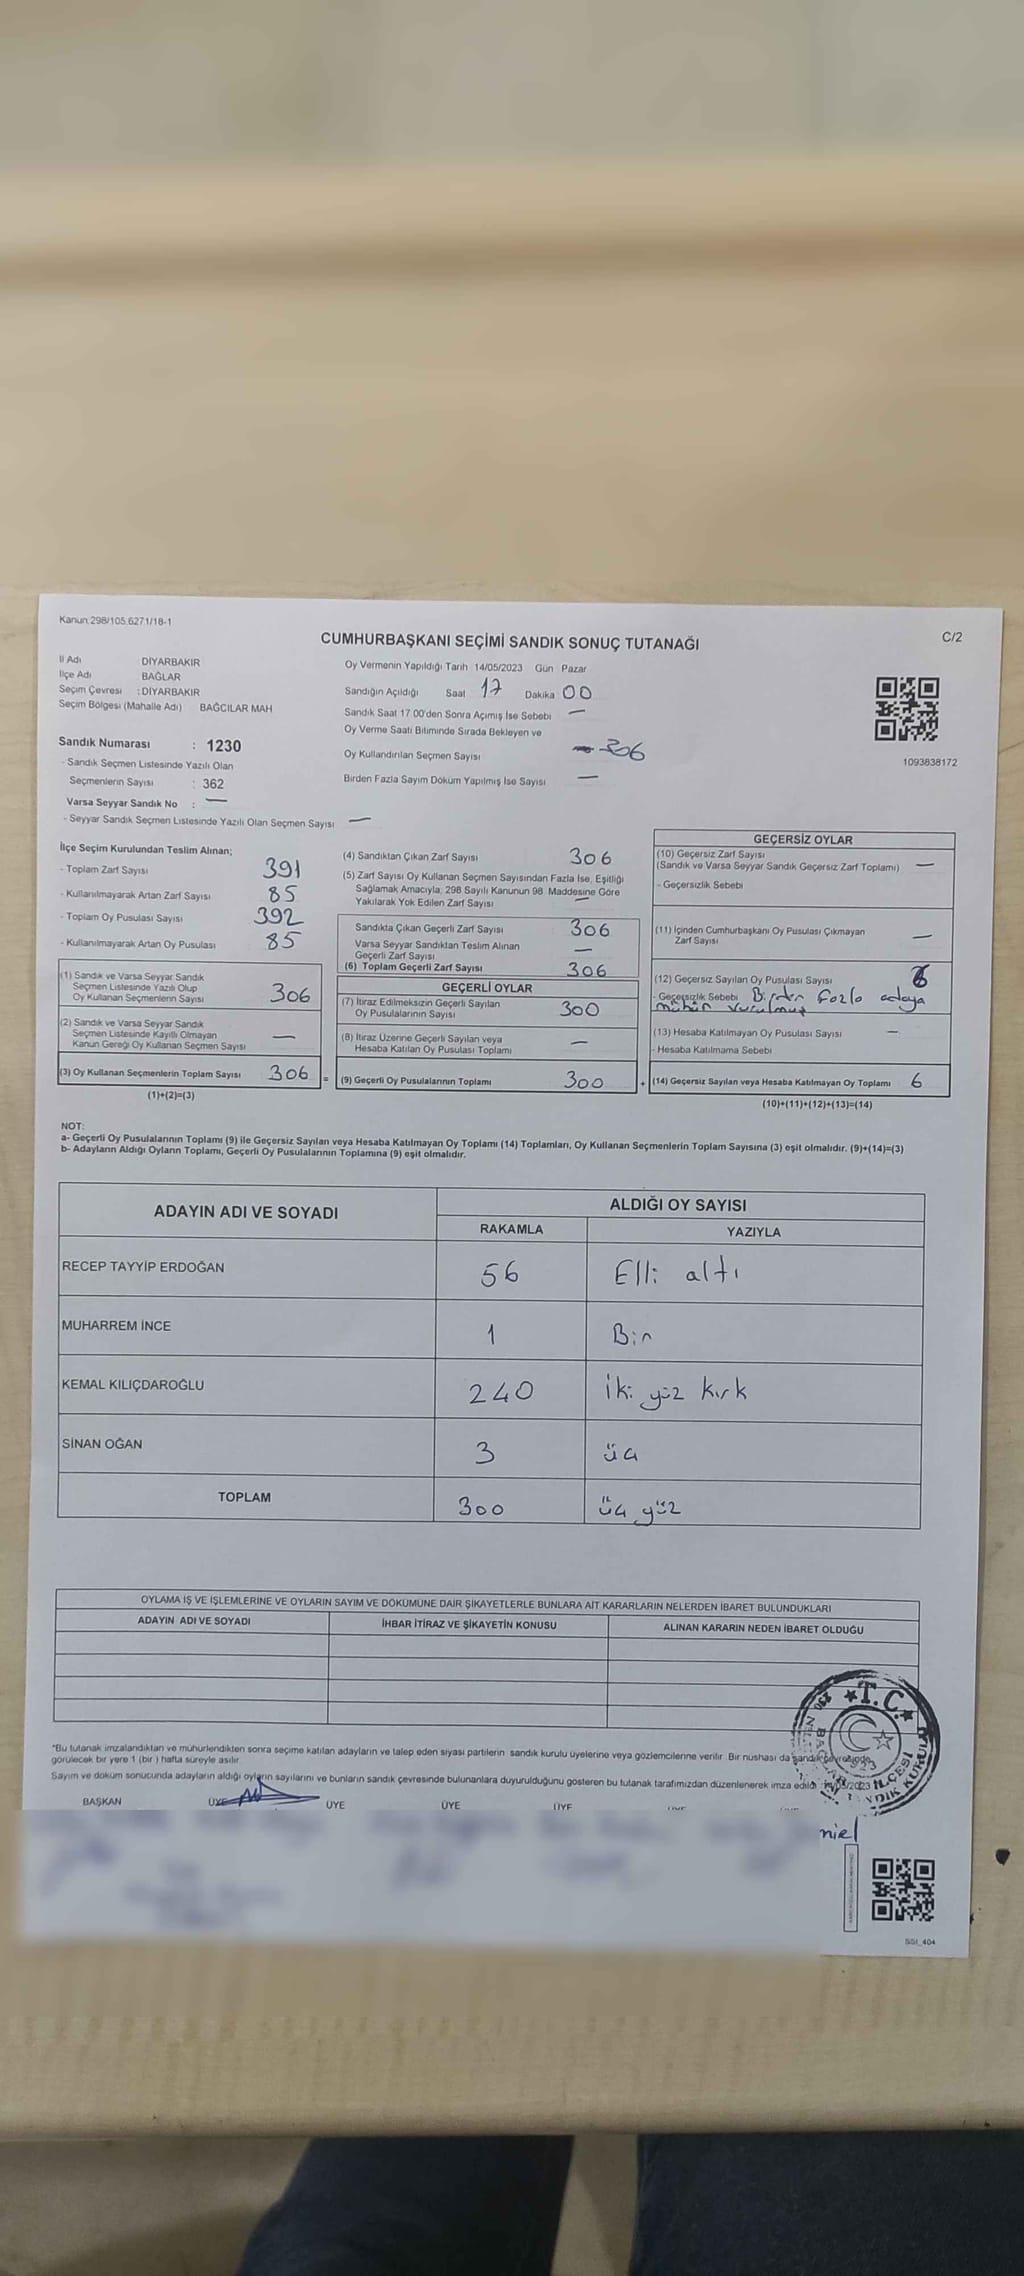 Kanun 298/105.6271/18-1
C/2
CUMHURBAŞKANI SEÇİMİ SANDIK SONUÇ TUTANAĞI
İl Adı DİYARBAKIR
İlçe Adı BAĞLAR
Seçim Çevresi : DİYARBAKIR
Seçim Bölgesi (Mahalle Adı) BAĞCILAR MAH
Sandık Numarası : 1230
- Sandık Seçmen Listesinde Yazılı Olan
Seçmenlerin Sayısı : 362
Varsa Seyyar Sandık No : —
- Seyyar Sandık Seçmen Listesinde Yazılı Olan Seçmen Sayısı —
Oy Vermenin Yapıldığı Tarih 14/05/2023 Gün Pazar
Sandığın Açıldığı Saat 17 Dakika 00
Sandık Saat 17 00'den Sonra Açımış İse Sebebi —
Oy Verme Saati Bitiminde Sırada Bekleyen ve
Oy Kullandırılan Seçmen Sayısı 306
Birden Fazla Sayım Döküm Yapılmış İse Sayısı —
1093838172
İlçe Seçim Kurulundan Teslim Alınan;
- Toplam Zarf Sayısı 391
- Kullanılmayarak Artan Zarf Sayısı 85
- Toplam Oy Pusulası Sayısı 392
- Kullanılmayarak Artan Oy Pusulası 85
(1) Sandık ve Varsa Seyyar Sandık
Seçmen Listesinde Yazılı Olup
Oy Kullanan Seçmenlerin Sayısı 306
(2) Sandık ve Varsa Seyyar Sandık
Seçmen Listesinde Kayıtlı Olmayan
Kanun Gereği Oy Kullanan Seçmen Sayısı —
(3) Oy Kullanan Seçmenlerin Toplam Sayısı 306 =
(1)+(2)=(3)
(4) Sandıktan Çıkan Zarf Sayısı 306
(5) Zarf Sayısı Oy Kullanan Seçmen Sayısından Fazla İse, Eşitliği
Sağlamak Amacıyla, 298 Sayılı Kanunun 98 Maddesine Göre
Yakılarak Yok Edilen Zarf Sayısı —
Sandıkta Çıkan Geçerli Zarf Sayısı 306
Varsa Seyyar Sandıktan Teslim Alınan
Geçerli Zarf Sayısı —
(6) Toplam Geçerli Zarf Sayısı 306
GEÇERLİ OYLAR
(7) İtiraz Edilmeksizin Geçerli Sayılan
Oy Pusulalarının Sayısı 300
(8) İtiraz Üzerine Geçerli Sayılan veya
Hesaba Katılan Oy Pusulası Toplamı —
(9) Geçerli Oy Pusulalarının Toplamı 300 +
GEÇERSİZ OYLAR
(10) Geçersiz Zarf Sayısı
(Sandık ve Varsa Seyyar Sandık Geçersiz Zarf Toplamı) —
- Geçersizlik Sebebi
(11) İçinden Cumhurbaşkanı Oy Pusulası Çıkmayan
Zarf Sayısı —
(12) Geçersiz Sayılan Oy Pusulası Sayısı 6
- Geçersizlik Sebebi Birden fazla adaya
mühür vurulmuş
(13) Hesaba Katılmayan Oy Pusulası Sayısı —
- Hesaba Katılmama Sebebi
(14) Geçersiz Sayılan veya Hesaba Katılmayan Oy Toplamı 6
(10)+(11)+(12)+(13)=(14)
NOT:
a- Geçerli Oy Pusulalarının Toplamı (9) ile Geçersiz Sayılan veya Hesaba Katılmayan Oy Toplamı (14) Toplamları, Oy Kullanan Seçmenlerin Toplam Sayısına (3) eşit olmalıdır. (9)+(14)=(3)
b- Adayların Aldığı Oyların Toplamı, Geçerli Oy Pusulalarının Toplamına (9) eşit olmalıdır.
ADAYIN ADI VE SOYADI ALDIĞI OY SAYISI
RAKAMLA YAZIYLA
RECEP TAYYİP ERDOĞAN 56 Elli altı
MUHARREM İNCE 1 Bir
KEMAL KILIÇDAROĞLU 240 İki yüz kırk
SİNAN OĞAN 3 üç
TOPLAM 300 üç yüz
OYLAMA İŞ VE İŞLEMLERİNE VE OYLARIN SAYIM VE DÖKÜMÜNE DAİR ŞİKAYETLERLE BUNLARA AİT KARARLARIN NELERDEN İBARET BULUNDUKLARI
ADAYIN ADI VE SOYADI İHBAR İTİRAZ VE ŞİKAYETİN KONUSU ALINAN KARARIN NEDEN İBARET OLDUĞU
*Bu tutanak imzalandıktan ve mühürlendikten sonra seçime katılan adayların ve talep eden siyasi partilerin sandık kurulu üyelerine veya gözlemcilerine verilir. Bir nüshası da sandık çevresinde
görülecek bir yere 1 (bir) hafta süreyle asılır.
Sayım ve döküm sonucunda adayların aldığı oyların sayılarını ve bunların sandık çevresinde bulunanlara duyurulduğunu gösteren bu tutanak tarafımızdan düzenlenerek imza edildi
T.C.
BAŞKAN ÜYE ÜYE ÜYE ÜYE
SSI_404